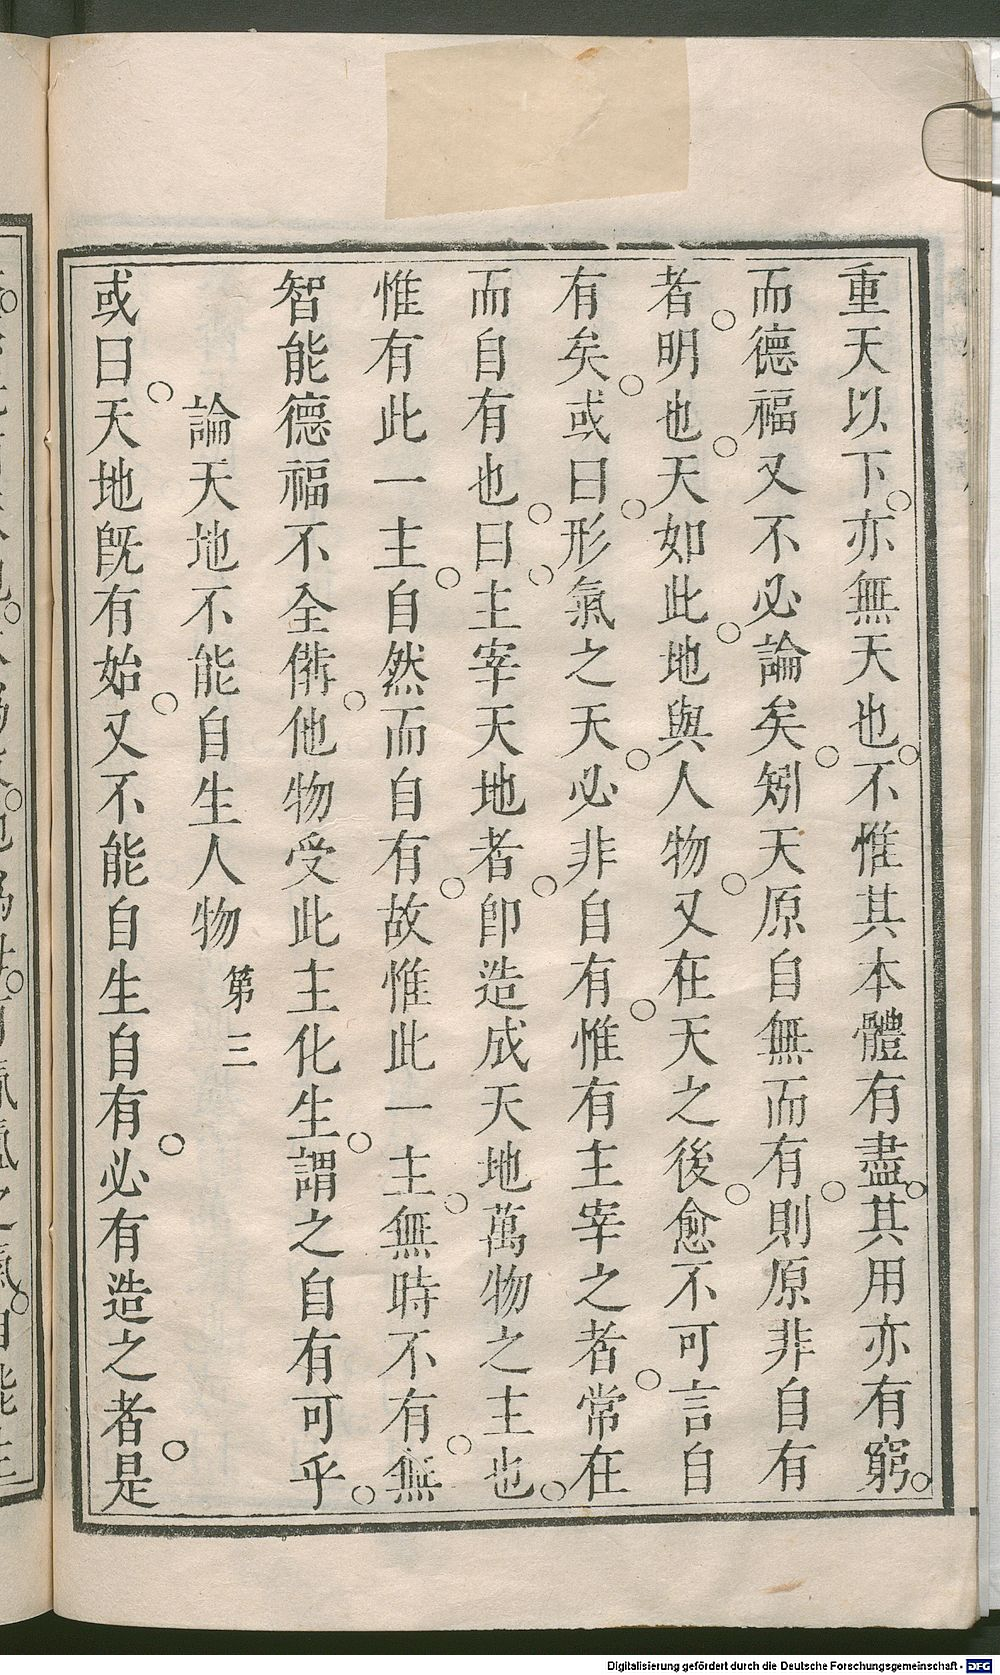 重天以下。亦無天也。不惟其本體有盡。其用亦有窮。
而德福又不必論矣。矧天原自無而有。則原非自有
者。明也。天如此。地與人物。又在天之後。愈不可言自
有矣。或曰。形氣之天。必非自有。惟有主宰之者。常在
而自有也。曰。主宰天地者。卽造成天地萬物之主也。
惟有此一主。自然而自有。故惟此一主。無時不有。無
智能德福不全備。他物受此主化生。謂之自有可乎。
論天地不能自生人物 第三
或曰。天地旣有始。又不能自生自有。必有造之者。是
Digitalisierung gefördert durch die Deutsche Forschungsgemeinschaft - DFG